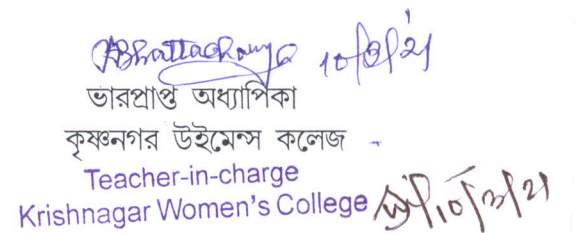 ABhattacharya ১০/৩/২১
ভারপ্রাপ্ত অধ্যাপিকা
কৃষ্ণনগর উইমেন্স কলেজ
Teacher-in-charge
Krishnagar Women's College
১০/৩/২১